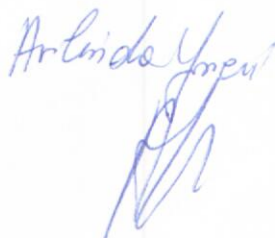 Arlinda Ymeri